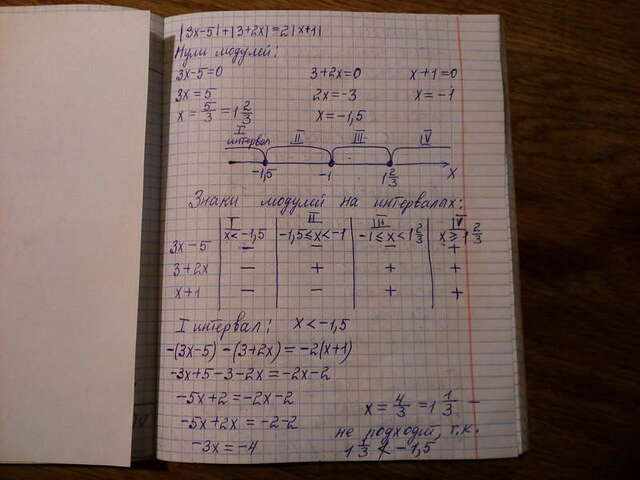 |3x-5|+|3+2x|=2|x+1|
Нули модулей:
3x-5=0 3+2x=0 x+1=0
3x=5 2x=-3 x=-1
x=5/3=1 2/3 x=-1,5
I интервал II III IV
-1,5 -1 1 2/3 x
Знаки модулей на интервалах:
I II III IV
x<-1,5 -1,5≤x<-1 -1≤x<1 2/3 x≥1 2/3
3x-5 − − − +
3+2x − + + +
x+1 − − + +
I интервал: x<-1,5
-(3x-5)-(3+2x)=-2(x+1)
-3x+5-3-2x=-2x-2
-5x+2=-2x-2
-5x+2x=-2-2
-3x=-4
x=4/3=1 1/3 −
не подходит, т.к.
1 1/3 ≮ -1,5